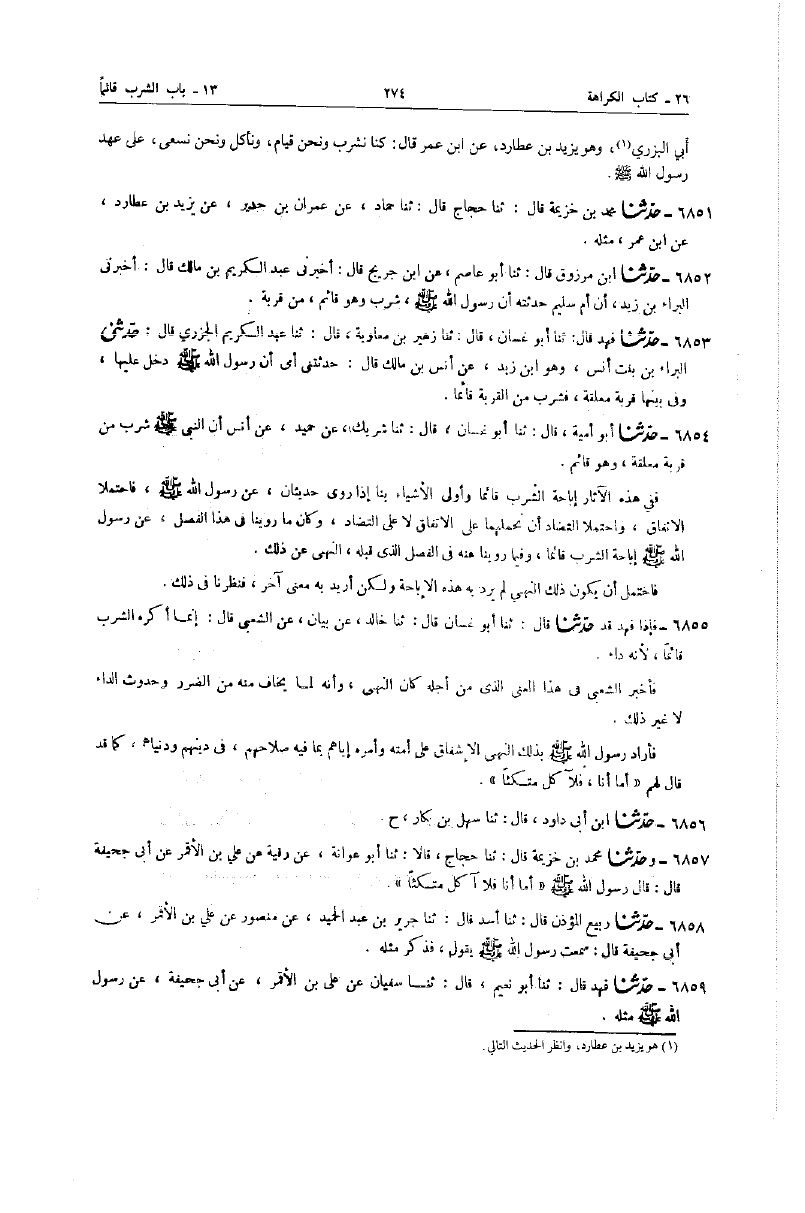 ٢٦ - كتاب الكراهة ٢٧٤ ١٣ - باب الشرب قائماً
أبي البزري(١)، وهو يزيد بن عطارد، عن ابن عمر قال: كنا نشرب ونحن قيام، ونأكل ونحن نسعى، على عهد
رسول الله ﷺ.
٦٨٥١ - حدثنا محمد بن خزيمة قال : ثنا حجاج قال : ثنا حماد ، عن عمران بن حدير ، عن يزيد بن عطارد ،
عن ابن عمر ، مثله .
٦٨٥٢ - حدثنا ابن مرزوق قال : ثنا أبو عاصم ، عن ابن جريج قال : أخبرنى عبد الكريم بن مالك قال : أخبرنى
البراء بن زيد ، أن أم سليم حدثته أن رسول الله ﷺ ، شرب وهو قائم ، من قربة .
٦٨٥٣ - حدثنا فهد قال: ثنا أبو غسان ، قال : ثنا زهير بن معاوية ، قال : ثنا عبد الكريم الجزري قال : حدثنى
البراء بن بنت أنس ، وهو ابن زيد ، عن أنس بن مالك قال : حدثتنى أمى أن رسول الله ﷺ دخل عليها ،
وفى بيتها قربة معلقة ، فشرب من القربة قائما .
٦٨٥٤ - حدثنا أبو أمية ، قال : ثنا أبو غسان ، قال : ثنا شريك، عن حميد ، عن أنس أن النبى ﷺ شرب من
قربة معلقة ، وهو قائم .
ففي هذه الآثار إباحة الشرب قائما وأولى الأشياء بنا إذا روى حديثان ، عن رسول الله ﷺ ، فاحتملا
الاتفاق ، واحتملا التضاد أن نحملهما على الاتفاق لا على التضاد ، وكان ما روينا فى هذا الفصل ، عن رسول
الله ﷺ إباحة الشرب قائما ، وفيما روينا عنه فى الفصل الذى قبله ، النهى عن ذلك .
فاحتمل أن يكون ذلك النهى لم يرد به هذه الإباحة ولكن أريد به معنى آخر ، فنظرنا فى ذلك .
٦٨٥٥ - فإذا فهد قد حدثنا قال : ثنا أبو غسان قال : ثنا خالد ، عن بيان ، عن الشعبى قال : إنما أكره الشرب
قائما ، لأنه داء .
فأخبر الشعبى فى هذا المعنى الذى من أجله كان النهى ، وأنه لما يخاف منه من الضرر وحدوث الداء
لا غير ذلك .
فأراد رسول الله ﷺ بذلك النهى الإشفاق على أمته وأمره إياهم بما فيه صلاحهم ، فى دينهم ودنياهم ، كما قد
قال لهم « أما أنا ، فلا آكل متكئاً » .
٦٨٥٦ - حدثنا ابن أبى داود ، قال : ثنا سهل بن بكار ، ح .
٦٨٥٧ - وحدثنا محمد بن خزيمة قال : ثنا حجاج ، قالا : ثنا أبو عوانة ، عن رقبة عن علي بن الأقمر عن أبى جحيفة
قال : قال رسول الله ﷺ « أما أنا فلا آكل متكئاً » .
٦٨٥٨ - حدثنا ربيع المؤذن قال : ثنا أسد قال : ثنا جرير بن عبد الحميد ، عن منصور عن علي بن الأقمر ، عن
أبى جحيفة قال : سمعت رسول الله ﷺ يقول ، فذكر مثله .
٦٨٥٩ - حدثنا فهد قال : ثنا أبو نعيم ، قال : ثنا سفيان عن على بن الأقمر ، عن أبى جحيفة ، عن رسول
الله ﷺ مثله .
(١) هو يزيد بن عطارد، وانظر الحديث التالي.